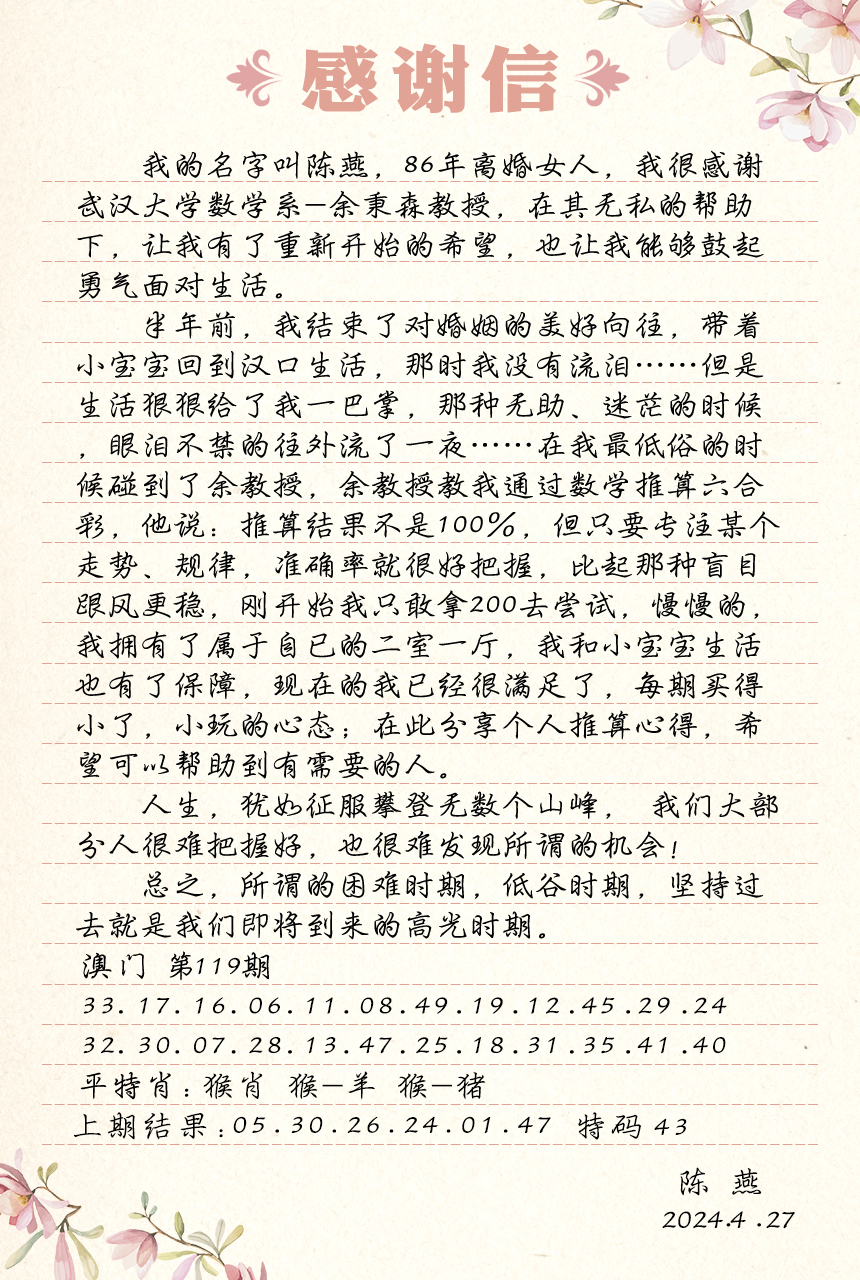 感谢信
我的名字叫陈燕，86年离婚女人，我很感谢
武汉大学数学系—余秉森教授，在其无私的帮助
下，让我有了重新开始的希望，也让我能够鼓起
勇气面对生活。
半年前，我结束了对婚姻的美好向往，带着
小宝宝回到汉口生活，那时我没有流泪……但是
生活狠狠给了我一巴掌，那种无助、迷茫的时候
，眼泪不禁的往外流了一夜……在我最低俗的时
候碰到了余教授，余教授教我通过数学推算六合
彩，他说：推算结果不是100%，但只要专注某个
走势、规律，准确率就很好把握，比起那种盲目
跟风更稳，刚开始我只敢拿200去尝试，慢慢的，
我拥有了属于自已的二室一厅，我和小宝宝生活
也有了保障，现在的我已经很满足了，每期买得
小了，小玩的心态；在此分享个人推算心得，希
望可以帮助到有需要的人。
人生，犹如征服攀登无数个山峰， 我们大部
分人很难把握好，也很难发现所谓的机会！
总之，所谓的困难时期，低谷时期，坚持过
去就是我们即将到来的高光时期。
澳门 第119期
33.17.16.06.11.08.49.19.12.45.29.24
32.30.07.28.13.47.25.18.31.35.41.40
平特肖：猴肖 猴—羊 猴—猪
上期结果：05.30.26.24.01.47 特码 43
陈 燕
2024.4.27